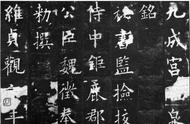 九成宮
銘
祕書監檢校
侍中鉅鹿郡
公臣魏徵奉
勅撰
維貞觀六年